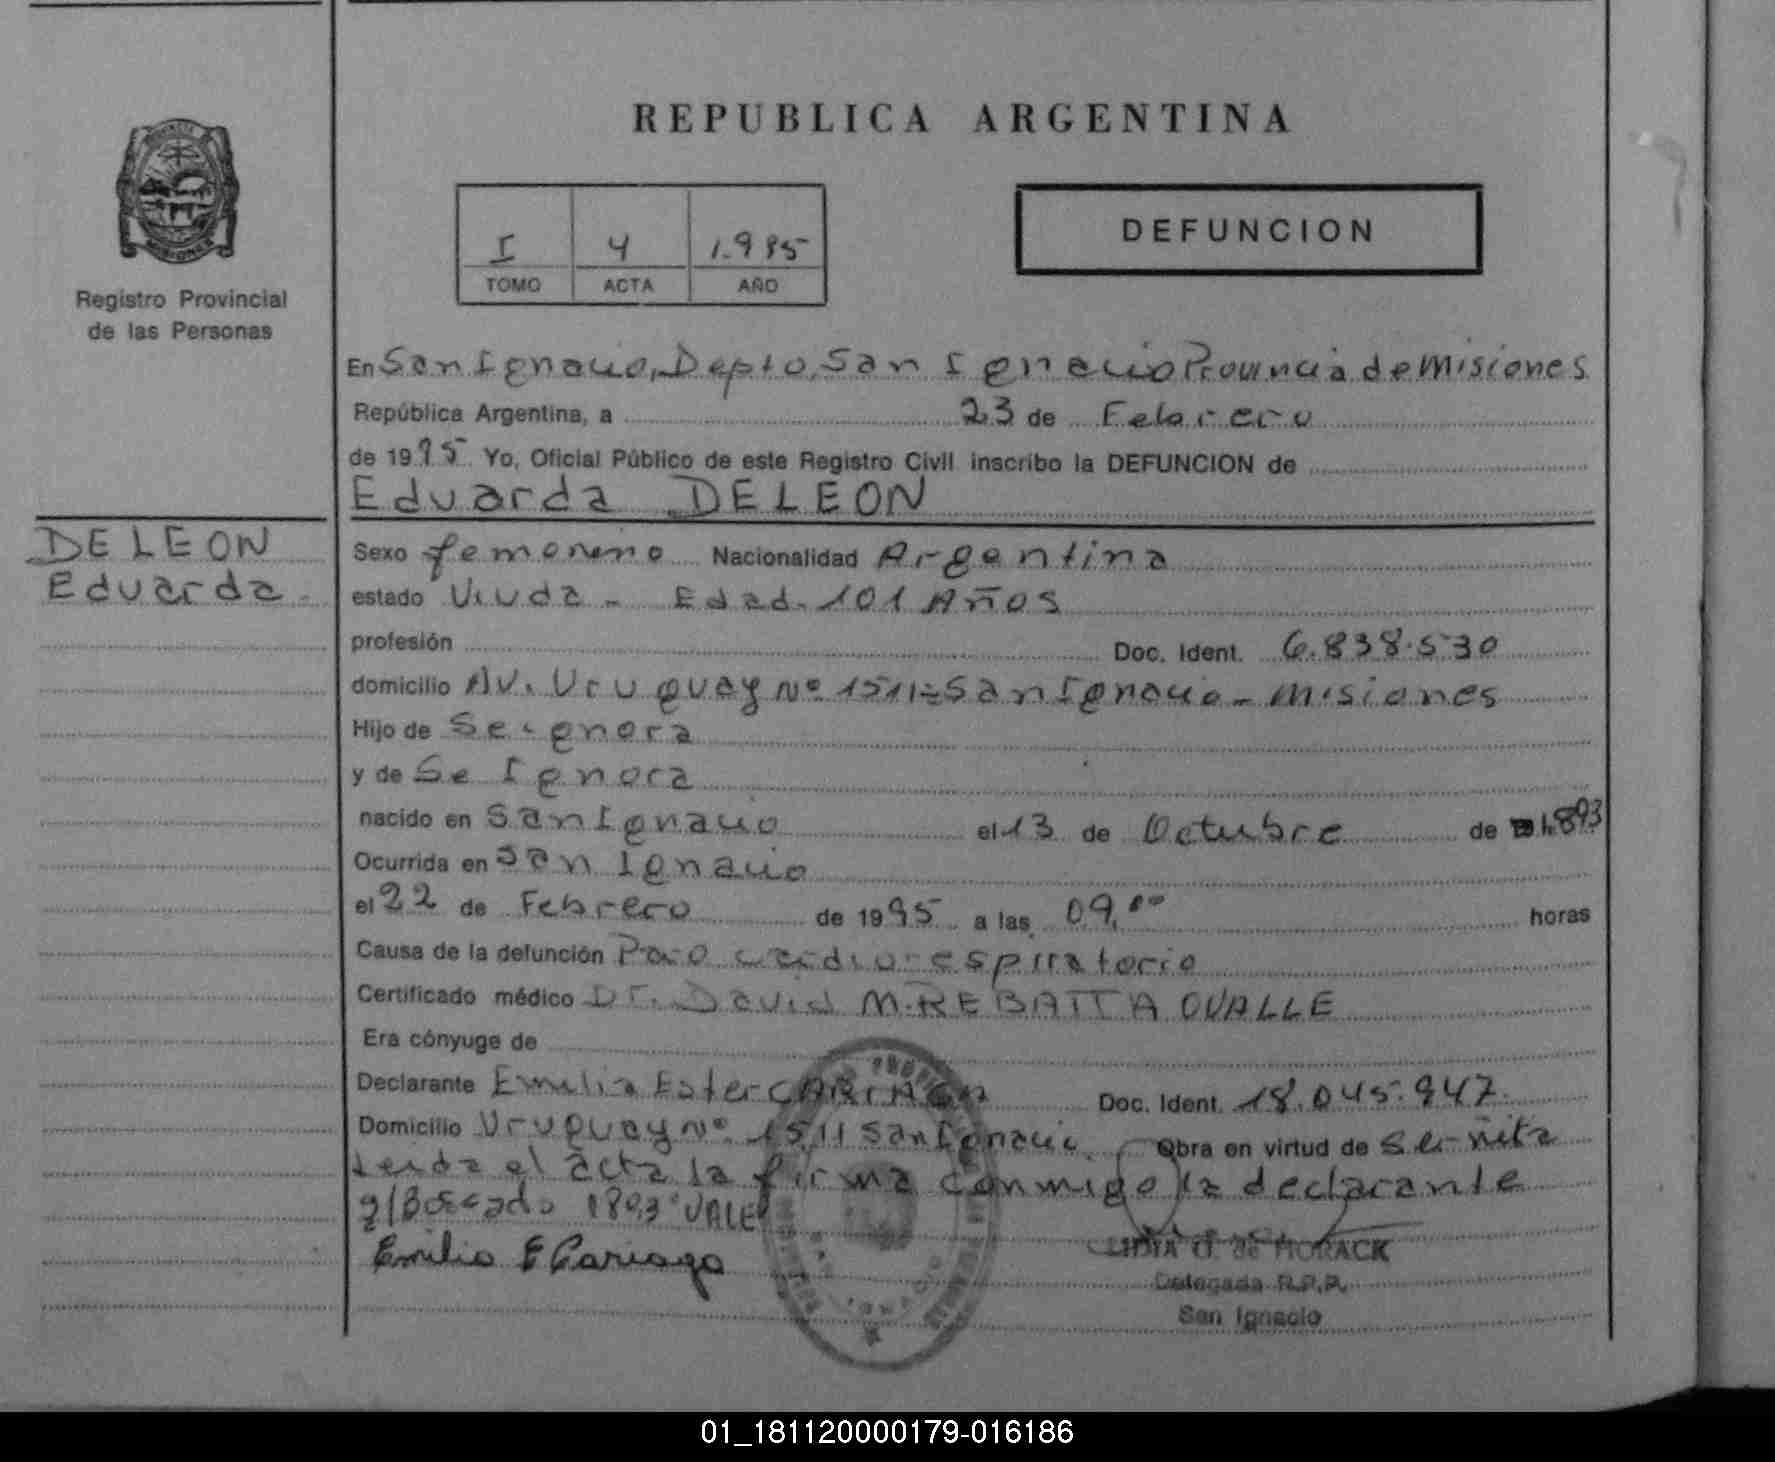 REPUBLICA ARGENTINA
I 4 1.995
TOMO ACTA AÑO
DEFUNCION
Registro Provincial
de las Personas
En San Ignacio, Depto, San Ignacio Provincia de Misiones
República Argentina, a 23 de Febrero
de 1995 Yo, Oficial Público de este Registro Civil inscribo la DEFUNCION de
Eduarda DELEON
DELEON
Eduarda
Sexo femenino Nacionalidad Argentina
estado Viuda - Edad. 101 Años
profesión Doc. Ident. 6.838.530
domicilio AV. Uruguay Nº 1511 - San Ignacio - Misiones
Hijo de Se ignora
y de Se Ignora
nacido en San Ignacio el 13 de Octubre de 1.893
Ocurrida en San Ignacio
el 22 de Febrero de 1995 a las 09,00 horas
Causa de la defunción Paro cardio respiratorio
Certificado médico Dr. David M. REBATTA OVALLE
Era cónyuge de
Declarante Emilia Ester CARIAGA Doc. Ident. 18.045.947
Domicilio Uruguay Nº 1511 San Ignacio. Obra en virtud de ser nieta
Leida el acta la firma conmigo la declarante
1893 VALE
Emilia E Cariaga
LIDIA G. de HORACK
Delegada R.P.P.
San Ignacio
01_181120000179-016186